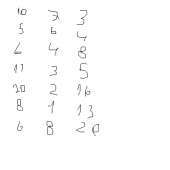 10 7 3
5 6 4
2 4 8
11 3 5
20 2 16
8 1 13
6 8 20